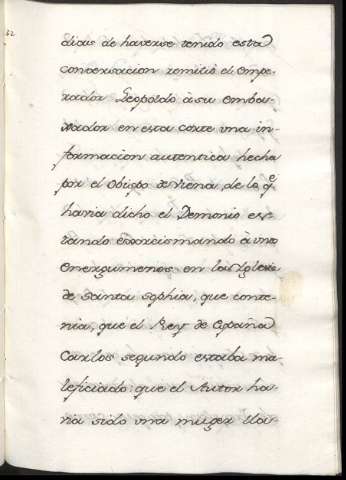 dias de haverse tenido esta
conversacion remitiò el Empe-
rador Leopoldo à su Emba-
xador en esta corte una in-
formacion autentica hecha
por el Obispo de Viena, de lo q.e
havia dicho el Demonio es-
tando exorcismando à unos
Energumenos en la Iglesia
de Santa Sophia, que conte-
nia, que el Rey de España
Carlos segundo estaba ma-
leficiado: que el Autor ha-
via sido una muger lla-